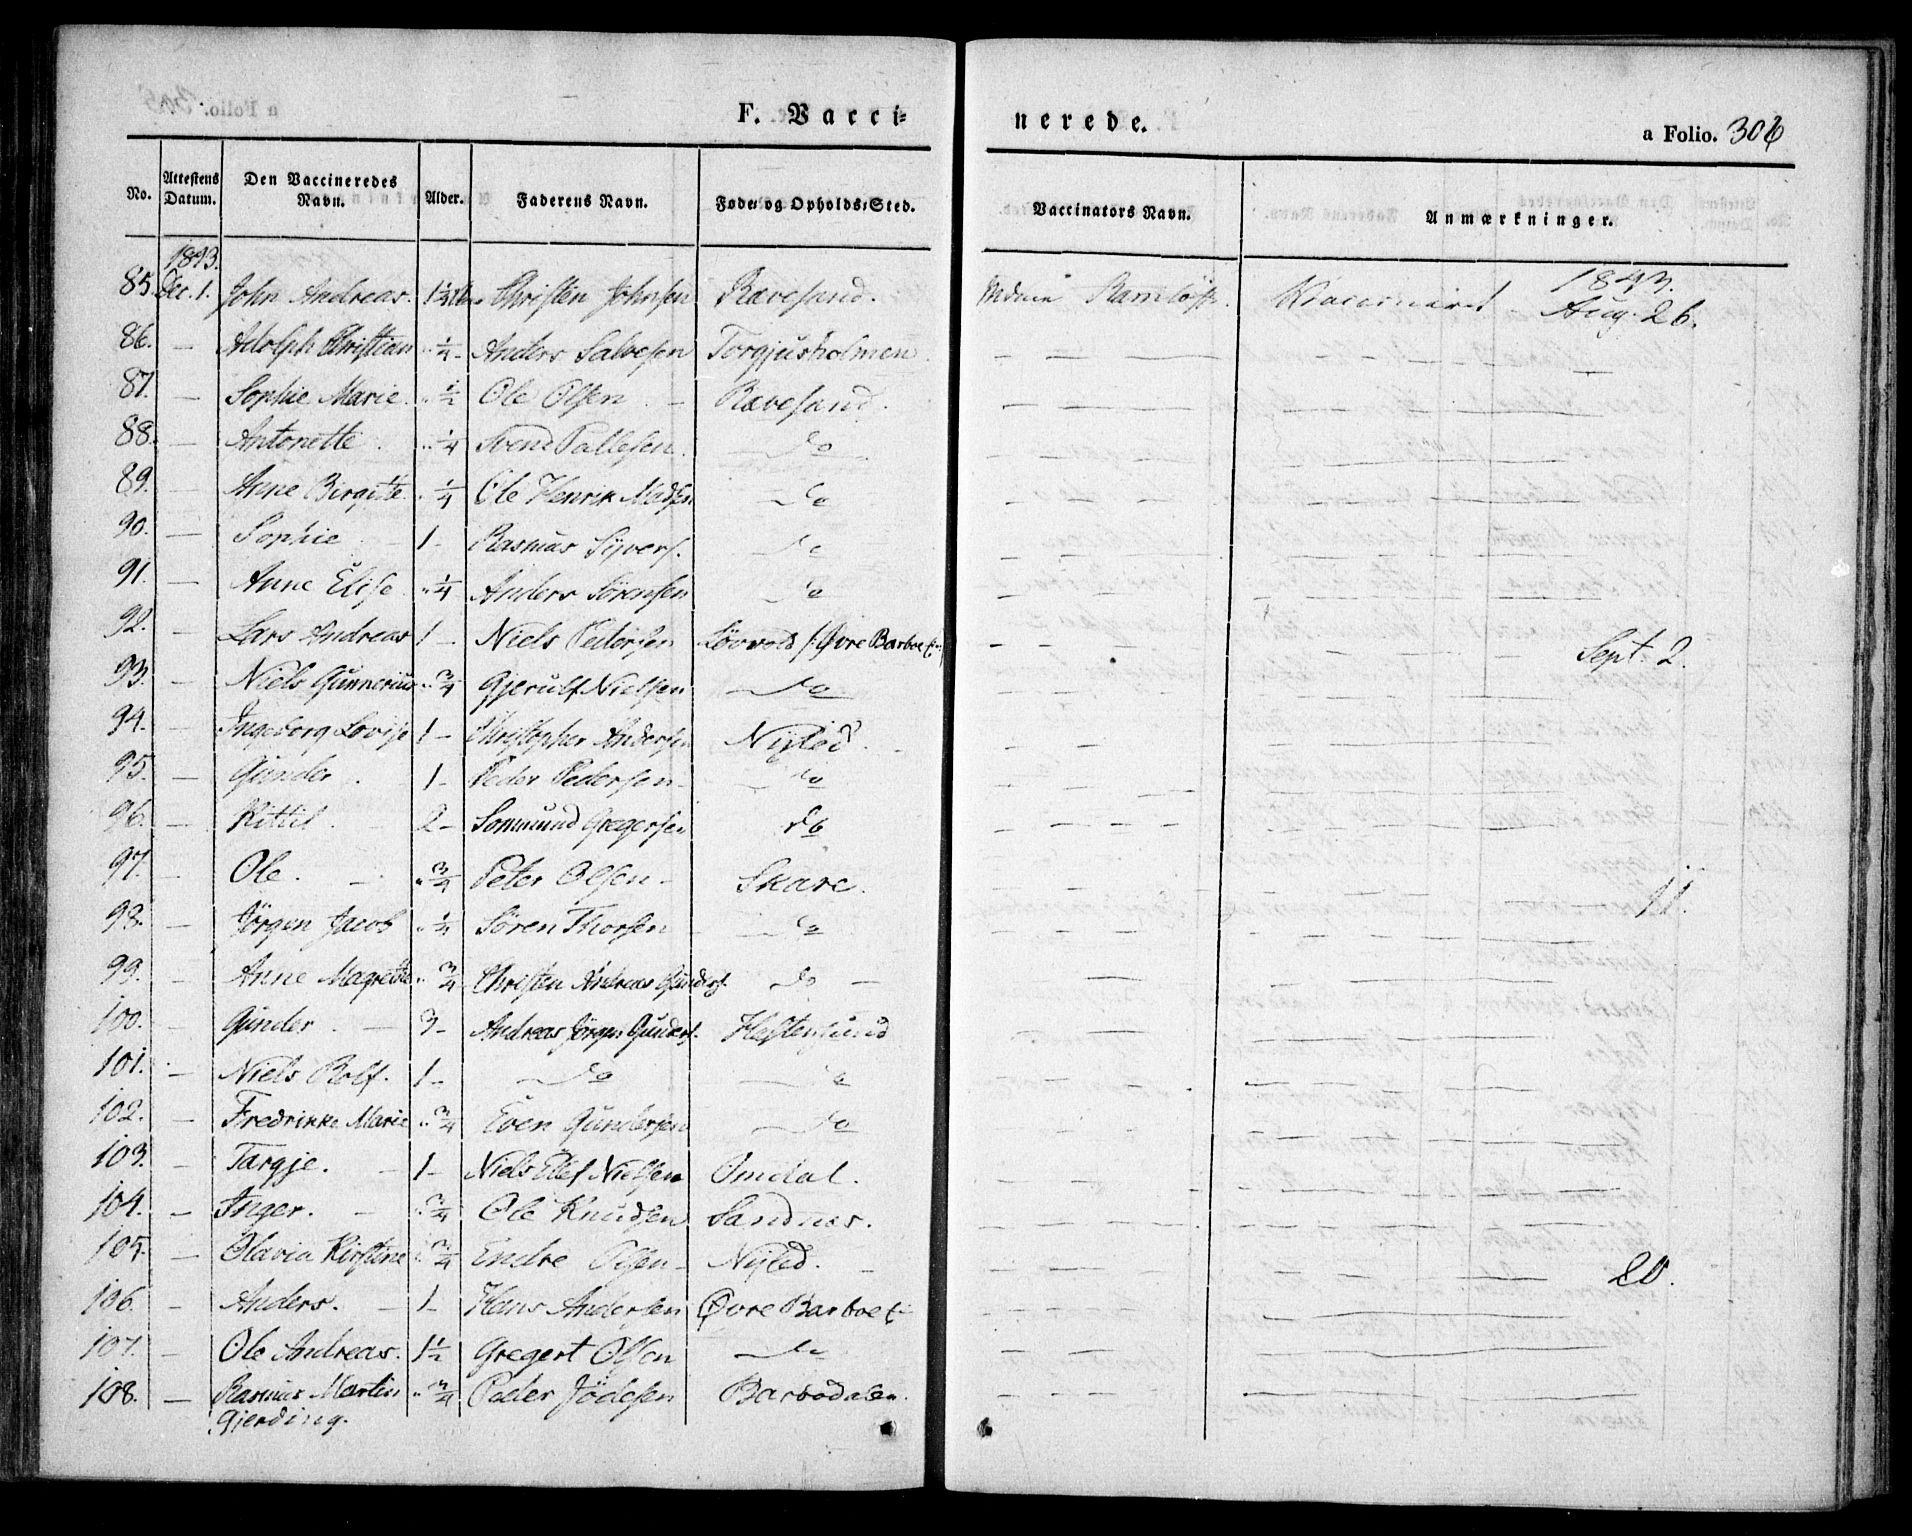 F. Vacci-
nerede.
a Folio. 306
No.
Attestens Datum.
Den Vaccineredes Navn.
Alder.
Faderens Navn.
Føde- og Opholds-Sted.
Vaccinators Navn.
Anmærkninger.
1843.
85. Dec. 1. John Andreas. Christen Johnsen Ravesand. 1843. Aug. 26.
86. — Adolph Christian " 1/4 - Anders Salvesen Torgjusholmen — — — —
87. — Sophie Marie. " 1/2 Ole Olsen — Ravesand. — — — —
88. — Antonette. " 1/4 Svend Pallesen. do — — — —
89. — Anne Birgitte " 1/4 Ole Henrik Madsen do — — — —
90. — Sophie 1 - Rasmus Syvers. do — — — —
91. — Anne Elise " 1/4 Anders Sörensen do — — — —
92. — Lars Andreas 1 - Niels Pedersen /: Øvre Barboe — — — — Sept. 2.
93. — Niels Gunnerius " 3/4 Gjerulf Nielsen do — — — —
94. — Ingeborg Lovise 1 - Christopher Andersen Nyled. — — — —
95. — Gunder. 1 - Peder Pedersen - do — — — —
96. — Kittil. 2 - Sommund Gregersen do — — — —
97. — Ole. — " 3/4 Peter Olsen - Skare. — — — — 11.
98. — Jörgen Jacob " 1/4 Sören Thorsen do — — — —
99. — Anne Magrethe " 3/4 Christen Andreas Gunders. do — — — —
100. — Gunder. — 3 - Andreas Jörgen Gunders. Hestesund — — — —
101. — Niels Rolf. 1 - do do — — — —
102. — Fredrikke Marie " 3/4 Even Gundersen do — — — —
103. — Targje. — 1 - Niels Ellef Nielsen Omdal. — — — —
104. — Inger. — " 3/4 Ole Knudsen Sandnes. — — — —
105. — Olavia Kirstine " 3/4 Endre Olsen - Nyled. — — — — — 20.
106. — Anders. — 1 - Hans Andersen Øvre Barboe — — — —
107. — Ole Andreas. 1 1/2 Gregert Olsen do — — — —
108. — Rasmus Martin " 3/4 Peder Jödesen Barbodalen. — — — —
Gjerding.